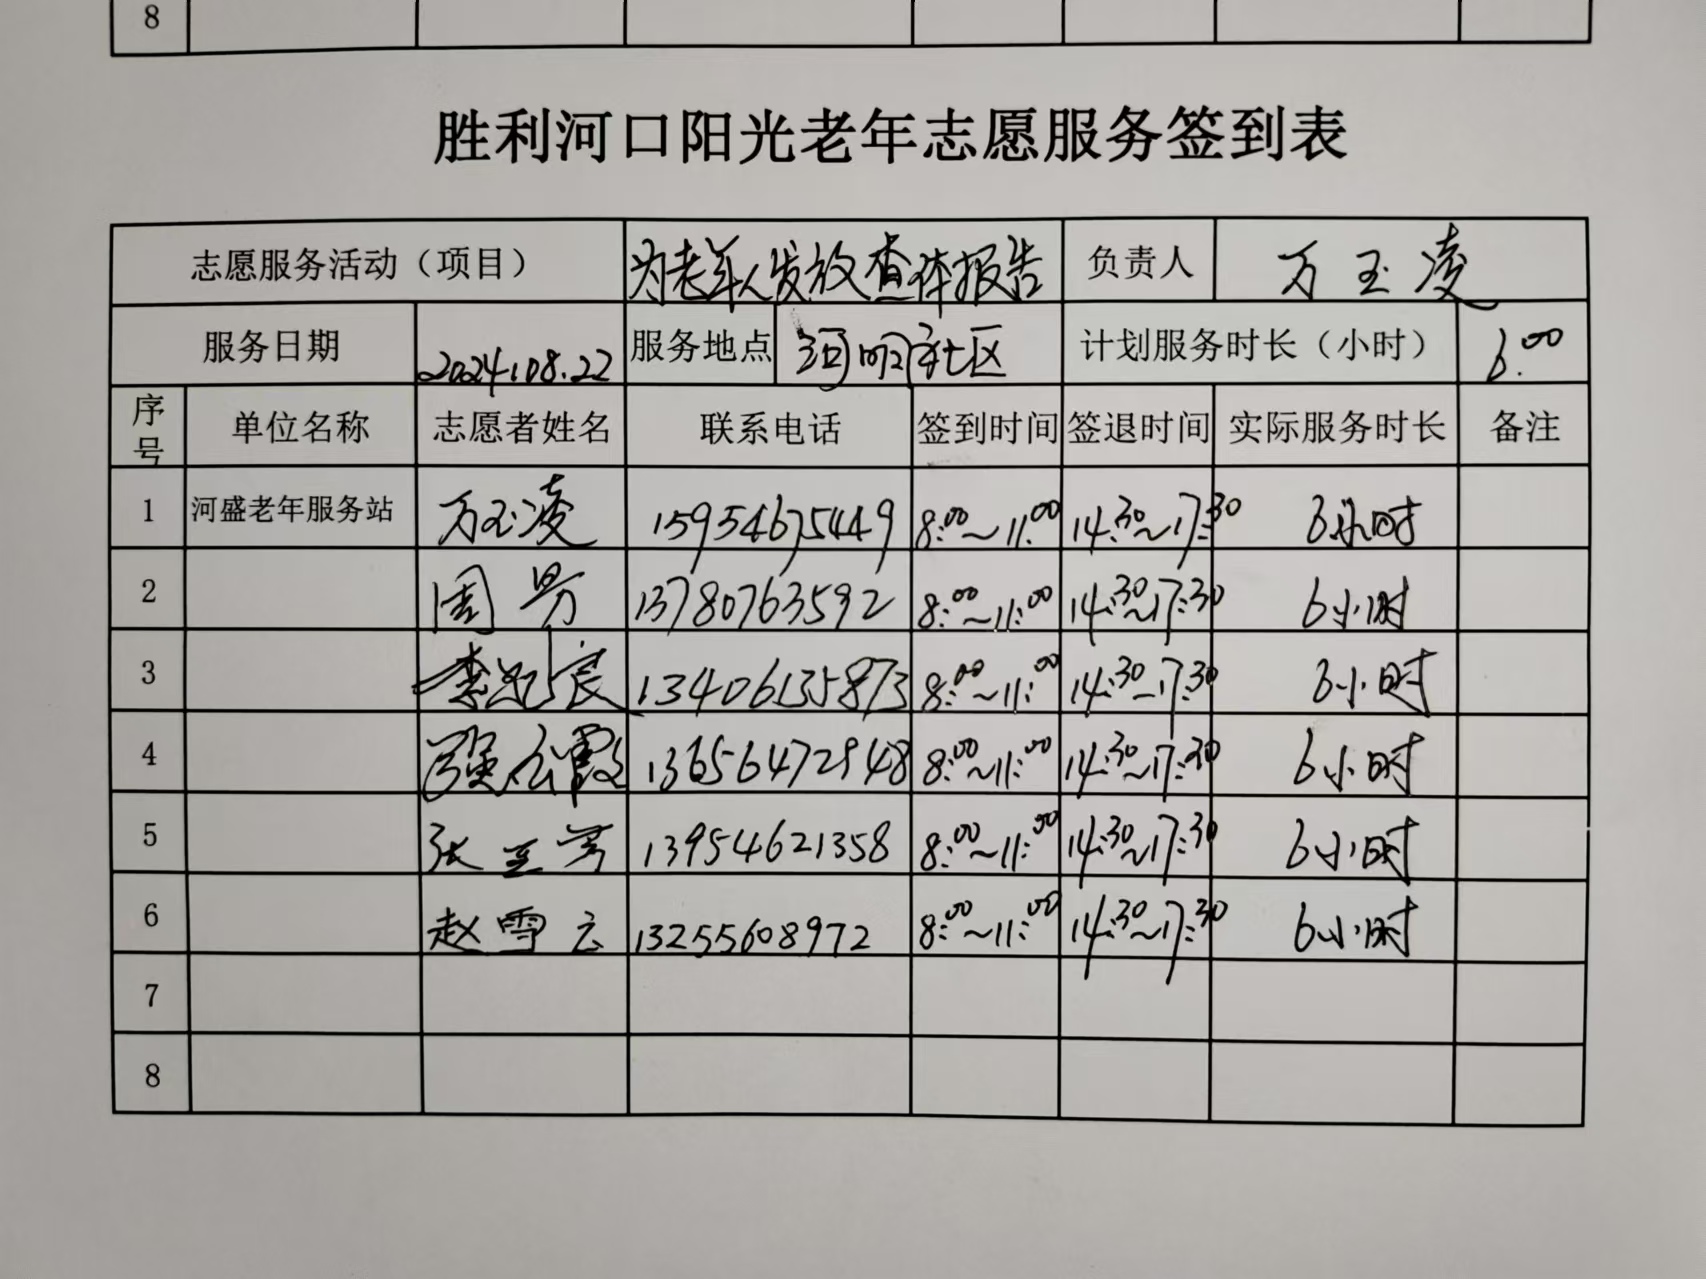 8
胜利河口阳光老年志愿服务签到表
志愿服务活动（项目） 为老年人发放查体报告 负责人 万玉凌
服务日期 2024.08.22 服务地点 河明社区 计划服务时长（小时） 6.00
序号 单位名称 志愿者姓名 联系电话 签到时间 签退时间 实际服务时长 备注
1 河盛老年服务站 万玉凌 15954675449 8:00~11:00 14:30~17:30 6小时
2 周 13780763592 8:00~11:00 14:30~17:30 6小时
3 李 良 13406135873 8:00~11:00 14:30~17:30 6小时
4 强 霞 13656472948 8:00~11:00 14:30~17:30 6小时
5 张 13954621358 8:00~11:00 14:30~17:30 6小时
6 赵雪云 13255608972 8:00~11:00 14:30~17:30 6小时
7
8